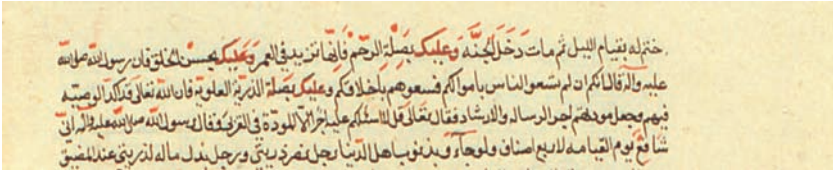 ختم له بقيام الليل ثم مات دخل الجنة وعليك بصلة الرحم فانها تزيد في العمر وعليك بحسن الخلق فان رسول الله صلى الله
عليه وآله قال انكم ان لم تسعوا الناس باموالكم فسعوهم باخلاقكم وعليك بصلة الذرية العلوية فان الله تعالى قد اكد الوصية
فيهم وجعل مودتهم اجر الرسالة والارشاد فقال تعالى قل لا اسئلكم عليه اجرا الا المودة في القربى وقال رسول الله صلى الله عليه وآله انى
شافع يوم القيامة لاربع اصناف ولو جاؤ بذنوب اهل الدنيا رجل نصر ذريتى ورجل بذل ماله لذريتى عند المضيق